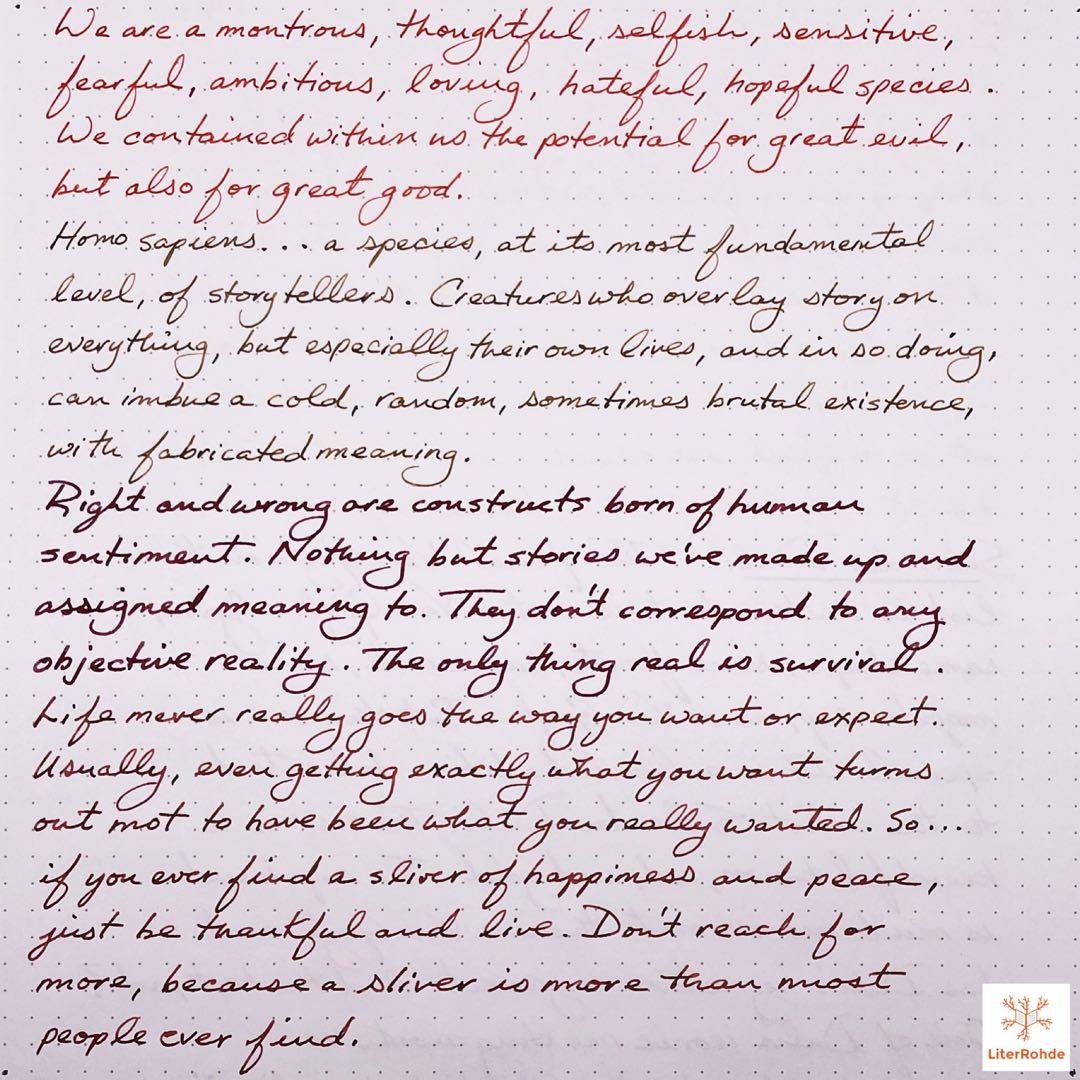 We are a montrous, thoughtful, selfish, sensitive,
fearful, ambitious, loving, hateful, hopeful species.
We contained within us the potential for great evil,
but also for great good.
Homo sapiens... a species, at its most fundamental
level, of storytellers. Creatures who overlay story on
everything, but especially their own lives, and in so doing,
can imbue a cold, random, sometimes brutal existence,
with fabricated meaning.
Right and wrong are constructs born of human
sentiment. Nothing but stories we've made up and
assigned meaning to. They don't correspond to any
objective reality. The only thing real is survival.
Life never really goes the way you want or expect.
Usually, even getting exactly what you want turns
out not to have been what you really wanted. So...
if you ever find a sliver of happiness and peace,
just be thankful and live. Don't reach for
more, because a sliver is more than most
people ever find.
LiterRohde